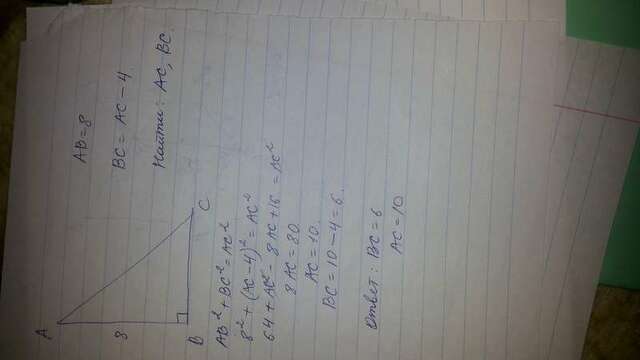 A
8
B
C
AB = 8
BC = AC - 4
Найти: AC, BC.
AB² + BC² = AC²
8² + (AC - 4)² = AC²
64 + AC² - 8 AC + 16 = AC²
8 AC = 80
AC = 10.
BC = 10 - 4 = 6.
Ответ: BC = 6
AC = 10